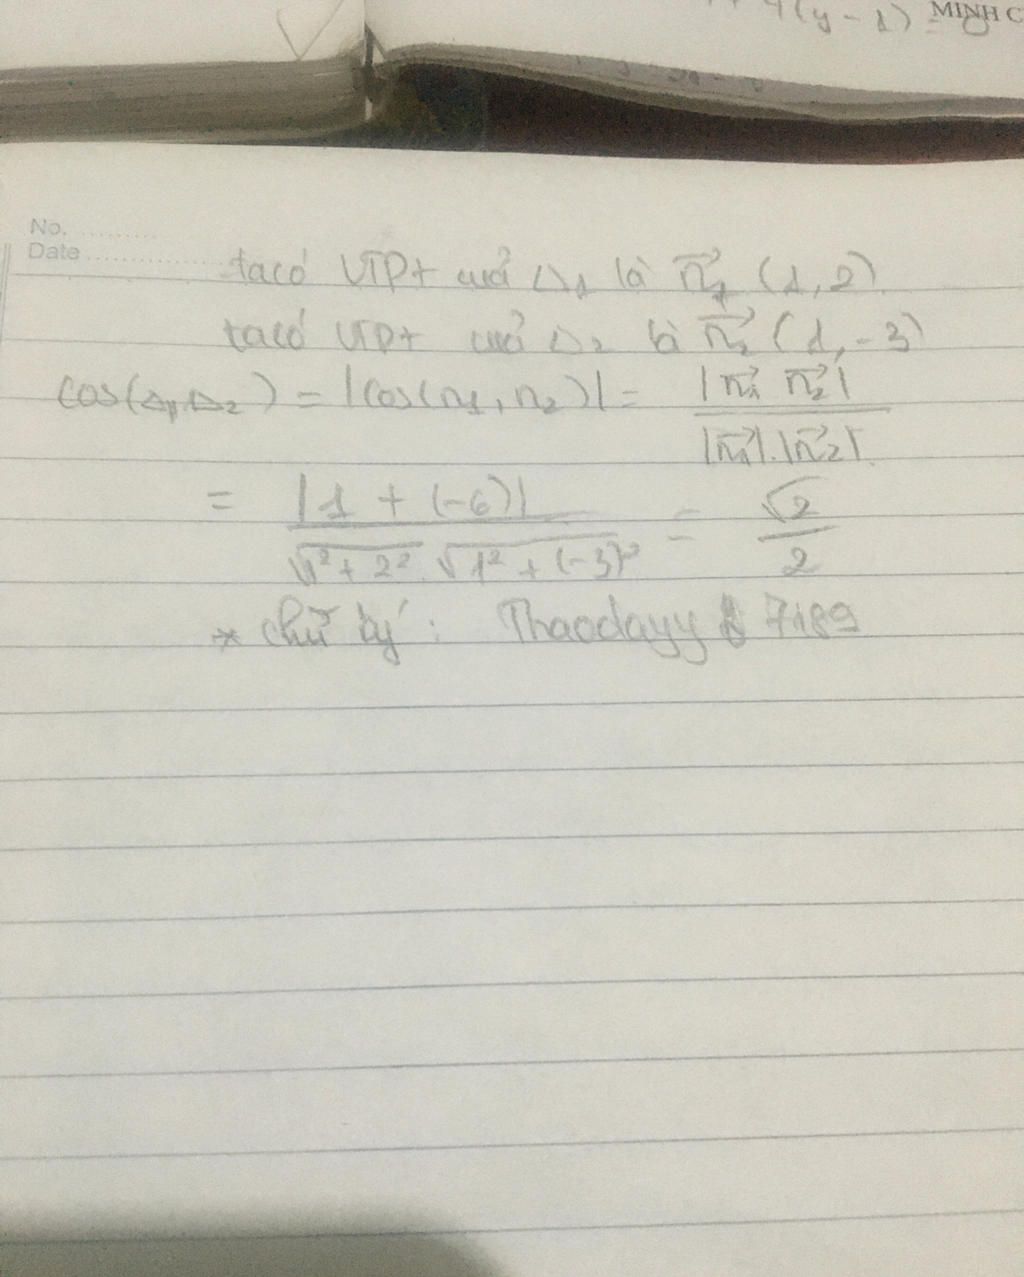 4(y - 1) = 0
MINH C
No.
Date
ta có VTPT của Δ₁ là n₁⃗ (1, 2)
ta có VTPT của Δ₂ là n₂⃗ (1, -3)
cos(Δ₁, Δ₂) = |cos(n₁, n₂)| = |n₁⃗ n₂⃗| / |n₁⃗|.|n₂⃗|
= |1 + (-6)| / √1² + 2² . √1² + (-3)² = √2 / 2
* chữ ký : Thaodayy 7189